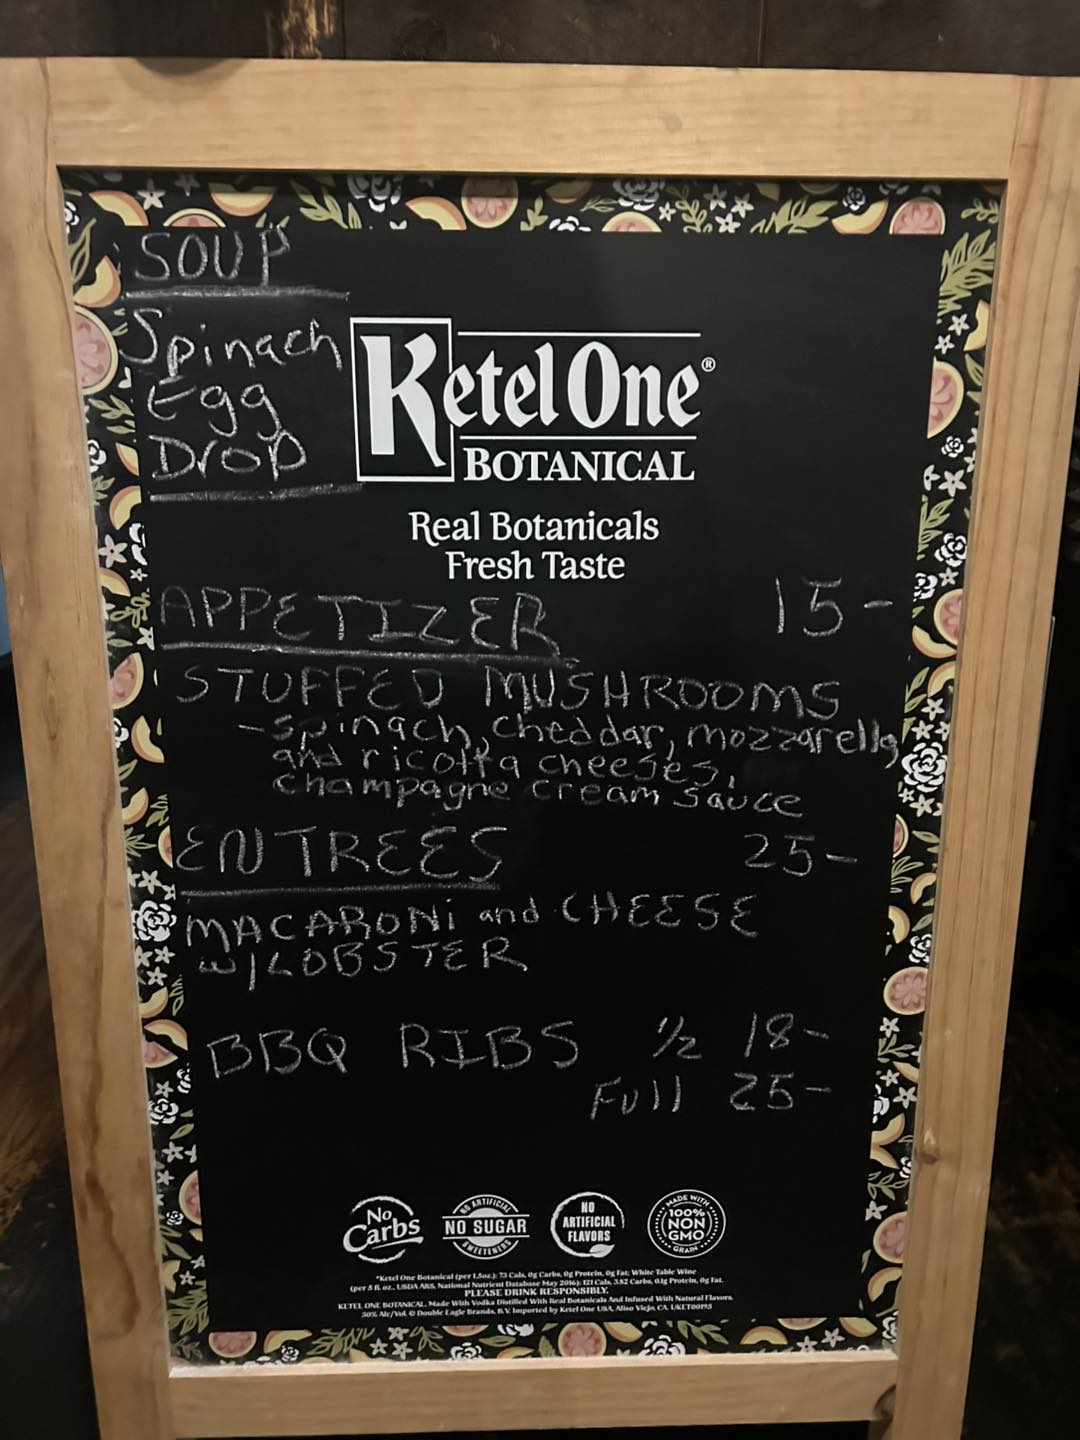 SOUP
Spinach
Egg
Drop
Ketel One®
BOTANICAL
Real Botanicals
Fresh Taste
APPETIZER 15-
STUFFED MUSHROOMS
-spinach, cheddar, mozzarella,
and ricotta cheeses,
champagne cream sauce
ENTREES 25-
MACARONi and CHEESE
w/LOBSTER
BBQ RIBS 1/2 18-
Full 25-
No Carbs
NO ARTIFICIAL
NO SUGAR
SWEETENERS
NO
ARTIFICIAL
FLAVORS
MADE WITH
100%
NON
GMO
GRAIN
*Ketel One Botanical (per 1.5oz.): 73 Cals, 0g Carbs, 0g Protein, 0g Fat; White Table Wine
(per 5 fl. oz., USDA ARS, National Nutrient Database May 2016): 121 Cals, 3.82 Carbs, 0.1g Protein, 0g Fat.
PLEASE DRINK RESPONSIBLY.
KETEL ONE BOTANICAL. Made With Vodka Distilled With Real Botanicals And Infused With Natural Flavors.
30% Alc/Vol. © Double Eagle Brands, B.V. Imported by Ketel One USA, Aliso Viejo, CA.